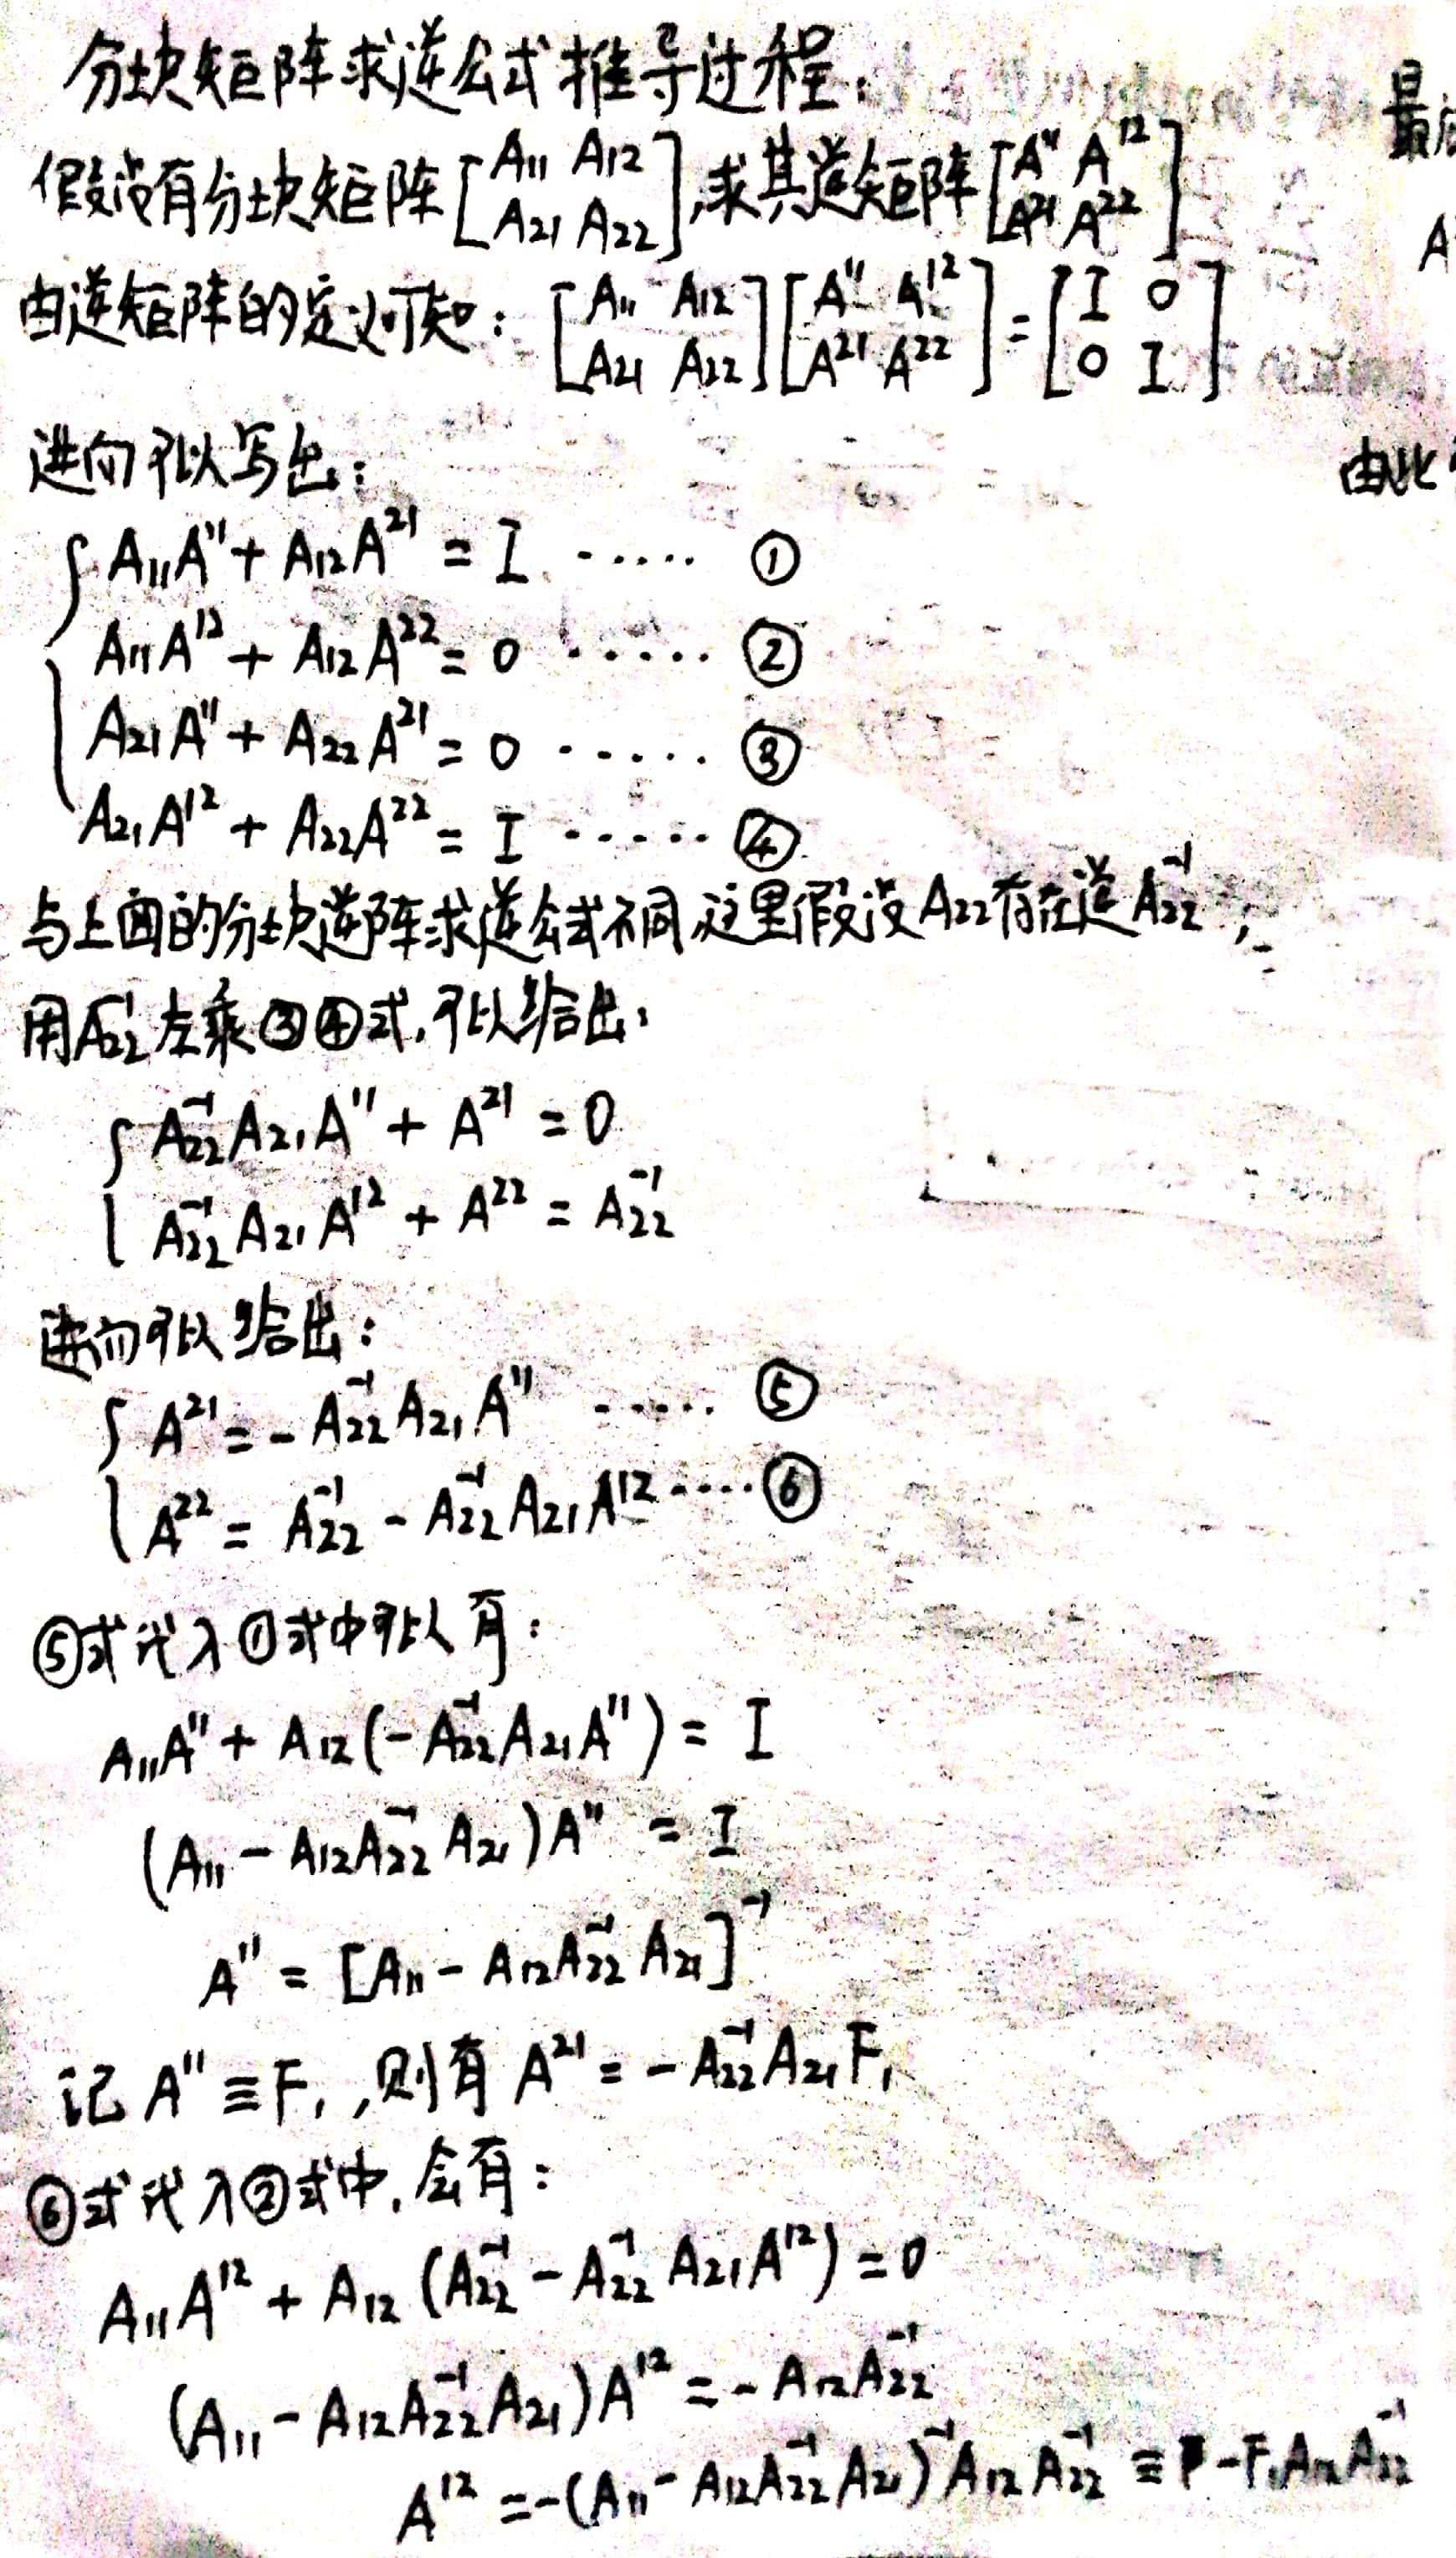 分块矩阵求逆公式推导过程：
假设有分块矩阵[A₁₁ A₁₂; A₂₁ A₂₂],求其逆矩阵[A¹¹ A¹²; A²¹ A²²]
由逆矩阵的定义可知：[A₁₁ A₁₂; A₂₁ A₂₂][A¹¹ A¹²; A²¹ A²²]=[I 0; 0 I]
进而可以写出：
A₁₁A¹¹ + A₁₂A²¹ = I ······ ①
A₁₁A¹² + A₁₂A²² = 0 ······ ②
A₂₁A¹¹ + A₂₂A²¹ = 0 ······ ③
A₂₁A¹² + A₂₂A²² = I ······ ④
与上面的分块逆阵求逆公式不同,这里假设A₂₂存在逆A₂₂⁻¹,
用A₂₂⁻¹左乘③④式,可以给出：
A₂₂⁻¹A₂₁A¹¹ + A²¹ = 0
A₂₂⁻¹A₂₁A¹² + A²² = A₂₂⁻¹
进而可以给出：
A²¹ = -A₂₂⁻¹A₂₁A¹¹ ······ ⑤
A²² = A₂₂⁻¹ - A₂₂⁻¹A₂₁A¹² ······ ⑥
⑤式代入①式中可以有：
A₁₁A¹¹ + A₁₂(-A₂₂⁻¹A₂₁A¹¹) = I
(A₁₁ - A₁₂A₂₂⁻¹A₂₁)A¹¹ = I
A¹¹ = [A₁₁ - A₁₂A₂₂⁻¹A₂₁]⁻¹
记 A¹¹ ≡ F₁,则有 A²¹ = -A₂₂⁻¹A₂₁F₁
⑥式代入②式中,会有：
A₁₁A¹² + A₁₂(A₂₂⁻¹ - A₂₂⁻¹A₂₁A¹²) = 0
(A₁₁ - A₁₂A₂₂⁻¹A₂₁)A¹² = -A₁₂A₂₂⁻¹
A¹² = -(A₁₁ - A₁₂A₂₂⁻¹A₂₁)⁻¹A₁₂A₂₂⁻¹ ≡ -F₁A₁₂A₂₂⁻¹
最
A
由此